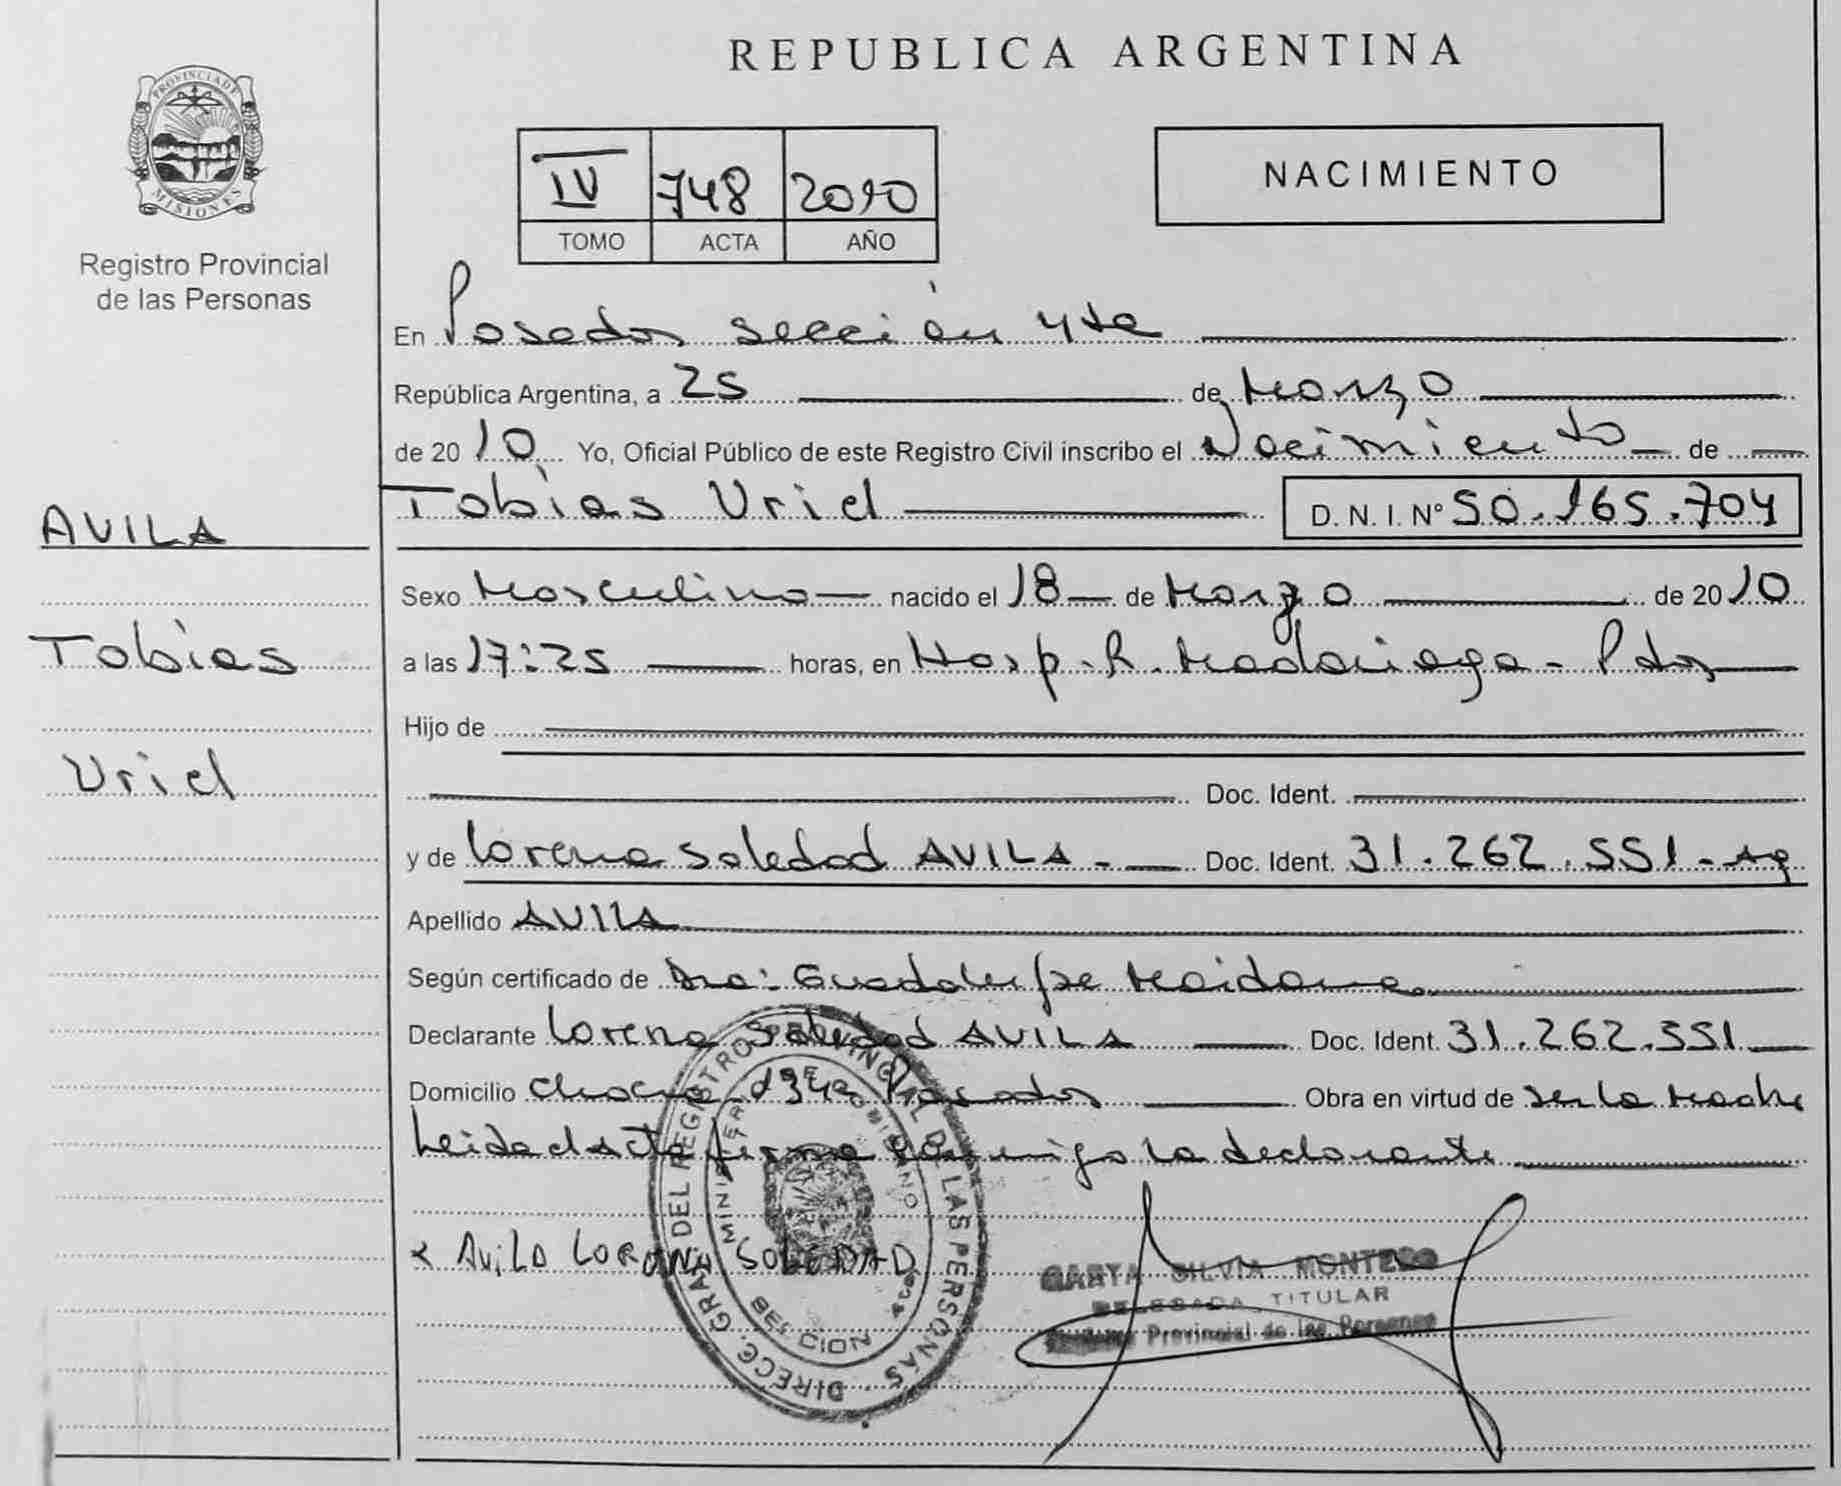 REPUBLICA ARGENTINA
PROVINCIA DE
MISIONES
Registro Provincial
de las Personas
IV 748 2010
TOMO ACTA AÑO
NACIMIENTO
En Posadas sección 4ta
República Argentina, a 25 de Marzo
de 2010 Yo, Oficial Público de este Registro Civil inscribo el Nacimiento de
Tobias Uriel D. N. I. Nº 50.165.704
AVILA
Tobias
Uriel
Sexo Masculino nacido el 18 de Marzo de 2010
a las 17:25 horas, en Hosp. R. Madariaga - Pdas
Hijo de
Doc. Ident.
y de Lorena Soledad AVILA - Doc. Ident. 31.262.551 -
Apellido AVILA
Según certificado de Dra: Guadalupe Maidana
Declarante Lorena Soledad AVILA Doc. Ident. 31.262.551
Domicilio Chacra Posadas Obra en virtud de ser la Madre
Leida el acta firma conmigo la declarante
AviLA LORENA SOLEDAD
DIRECC. GRAL. DEL REGISTRO PROVINCIAL DE LAS PERSONAS
MINISTERIO DE GOBIERNO
SECCION 4ta
SILVIA MONTERO
DELEGADA TITULAR
Provincial de las Personas